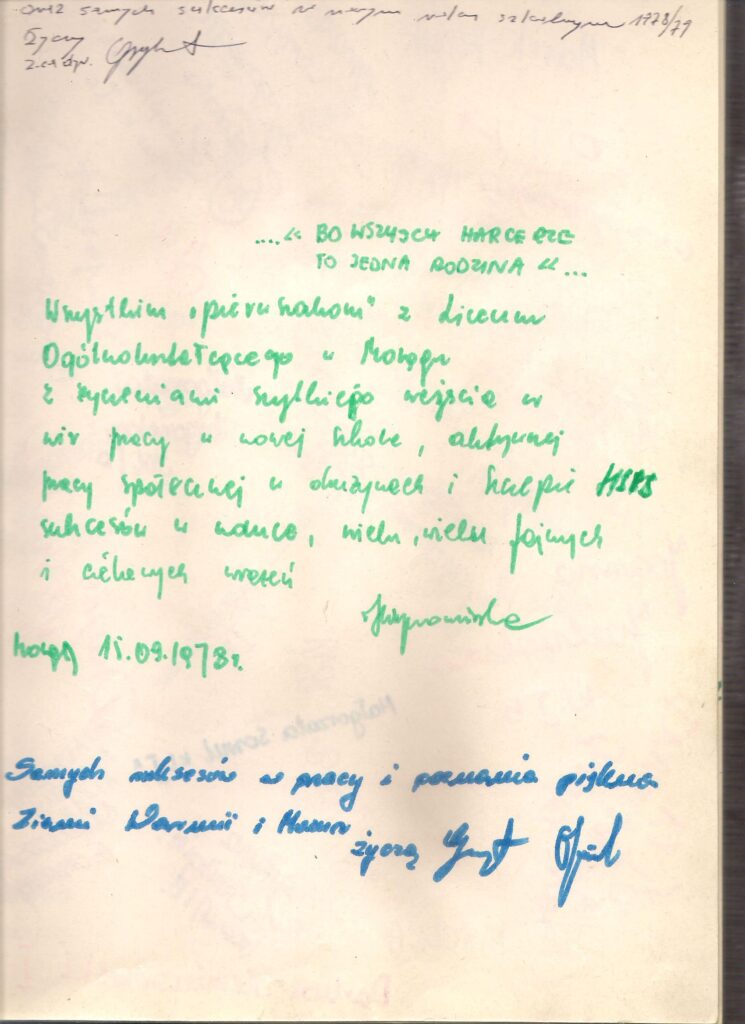 oraz samych sukcesów w nowym roku szkolnym 1978/79
Życzy
z-ca dyr.
...." BO WSZYSCY HARCERZE
TO JEDNA RODZINA "...
Wszystkim „pierwszakom" z Liceum
Ogólnokształcącego w Morągu
z życzeniami szybkiego wejścia w
wir pracy w nowej szkole, aktywnej
pracy społecznej w drużynach i szczepie HSPS
sukcesów w nauce, wielu, wielu fajnych
i ciekawych wrażeń
Morąg 15.09.1978r.
Małgorzata
Samych sukcesów w pracy i poznania piękna
Ziemi Warmii i Mazur
życzą